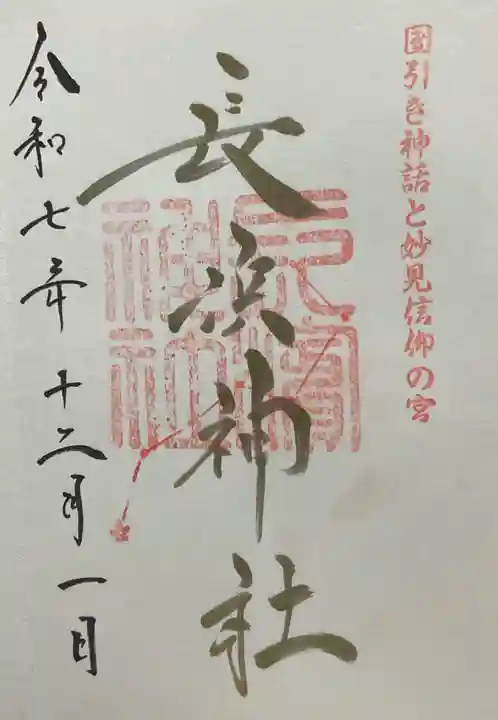 国引き神話と妙見信仰の宮
長浜神社
令和七年十二月一日